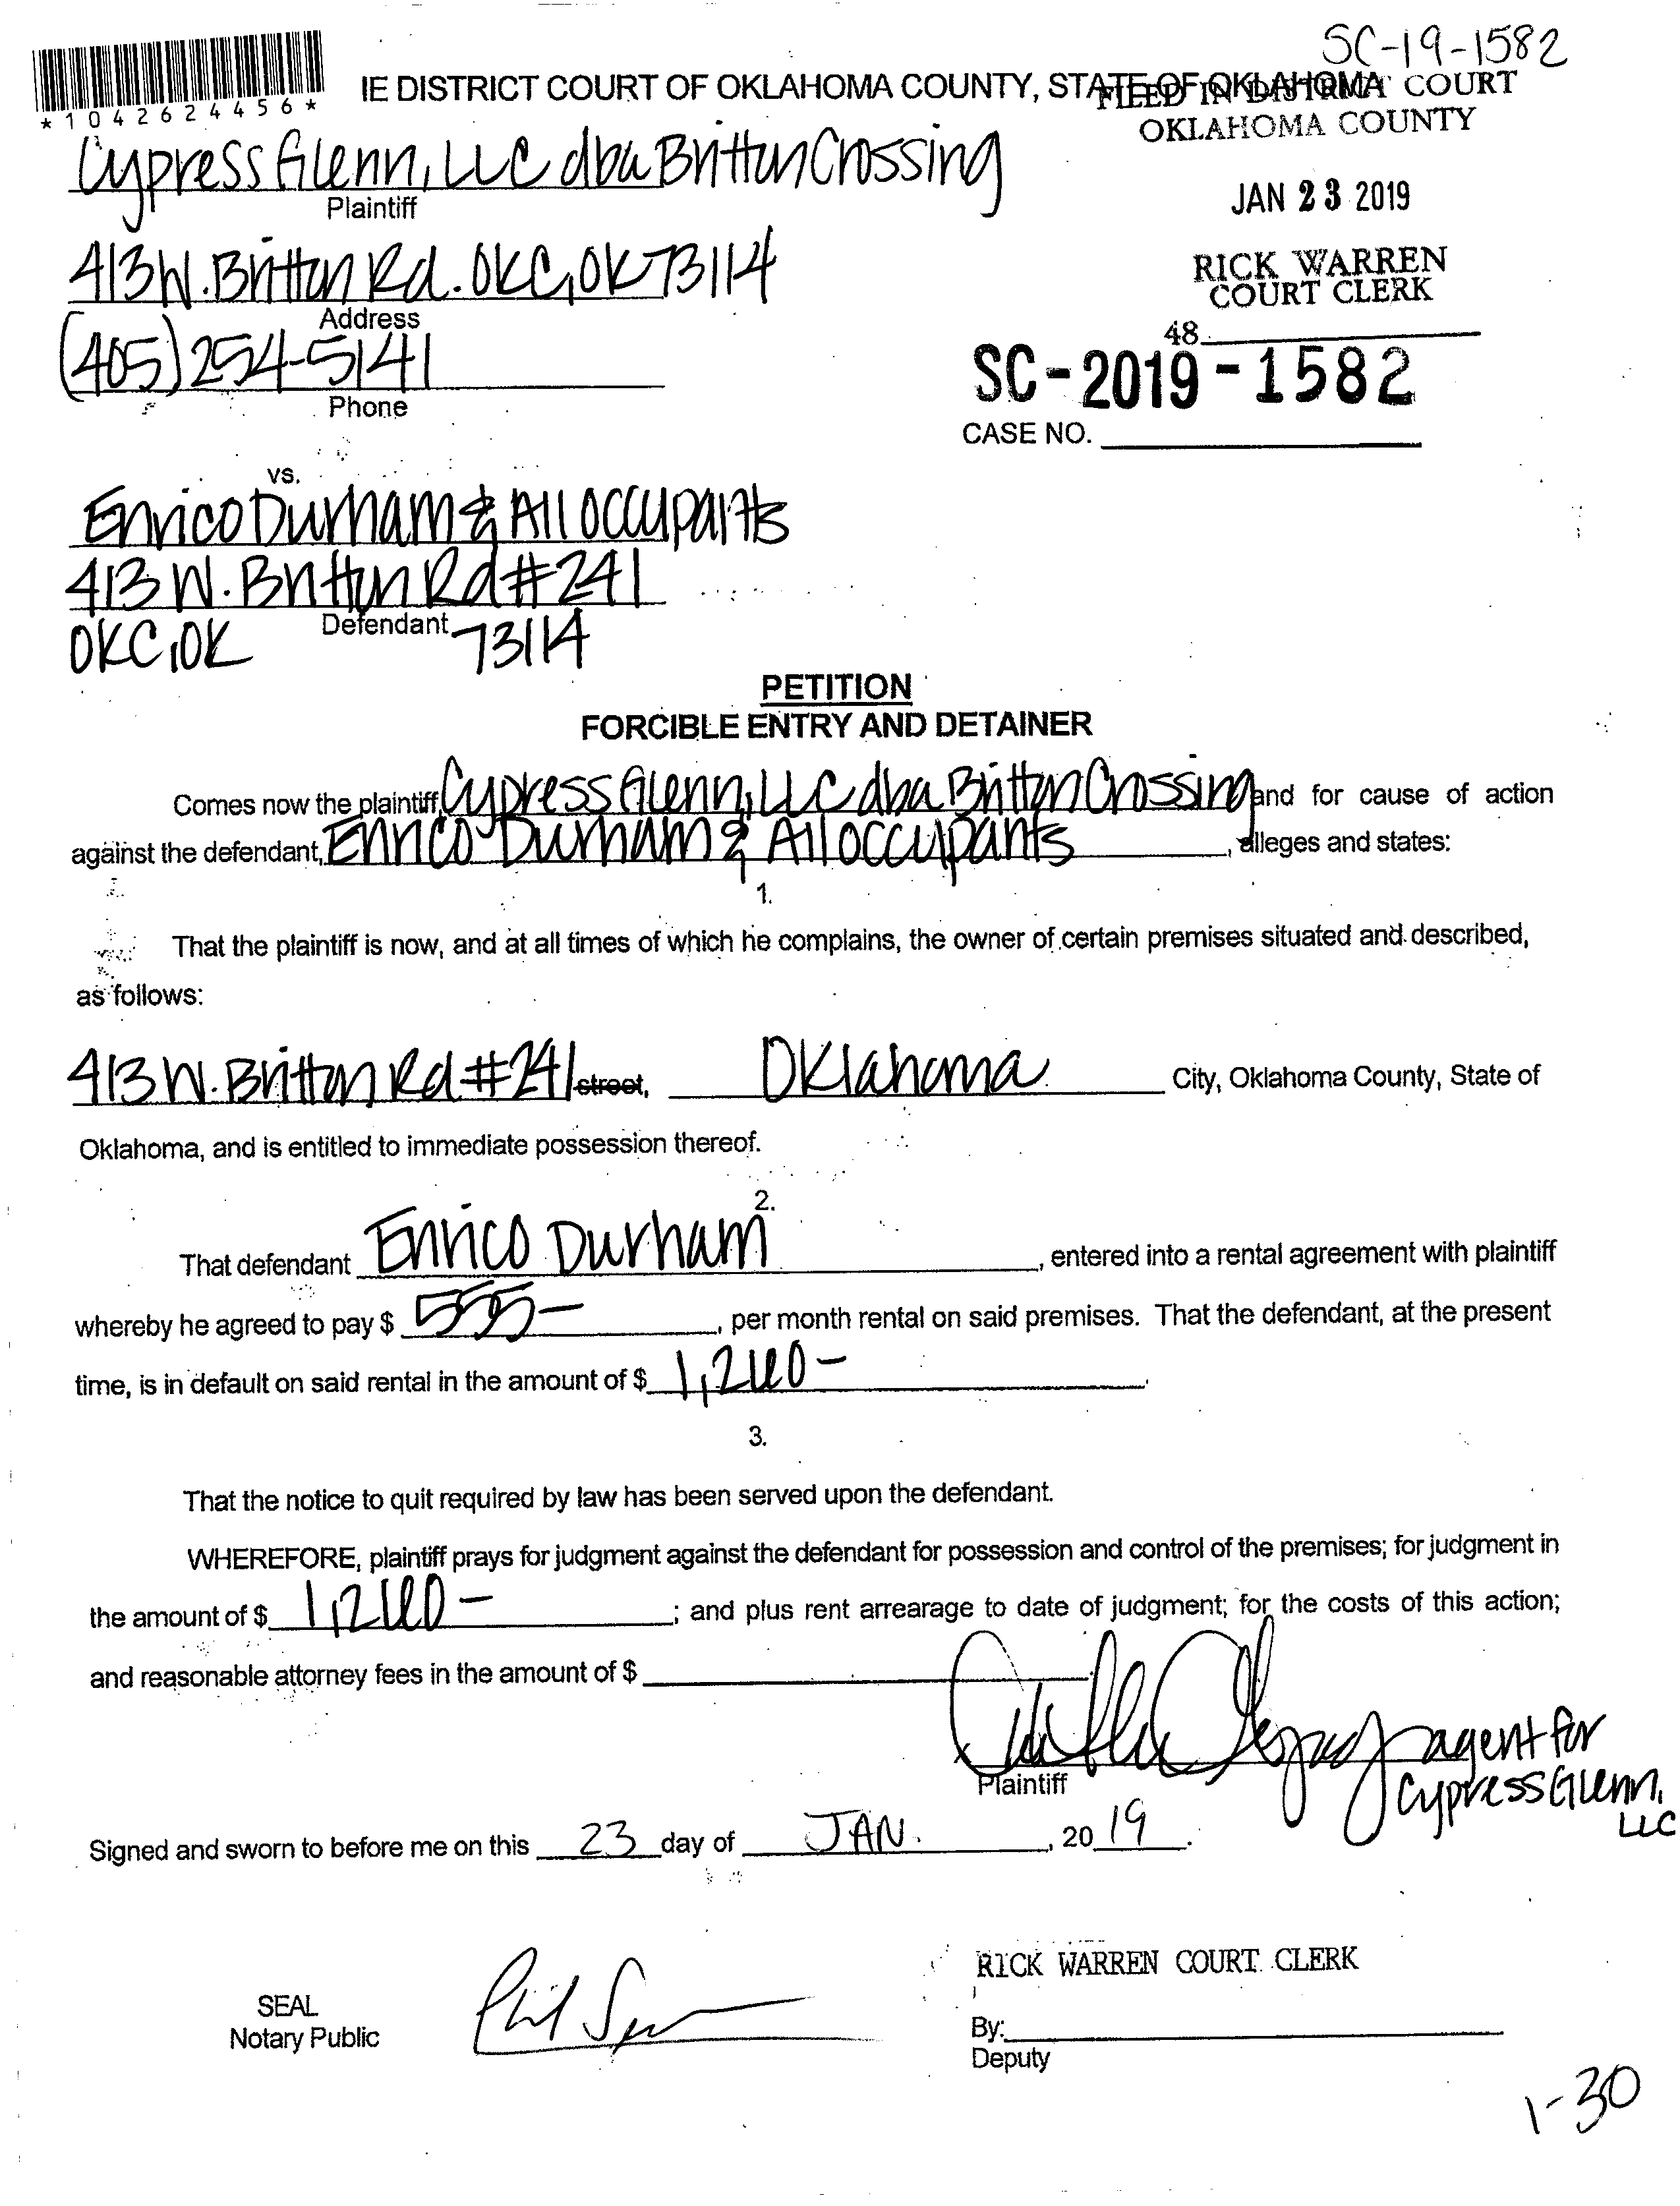 SC-19-1582
*1042624456*
IE DISTRICT COURT OF OKLAHOMA COUNTY, STATE OF OKLAHOMA
FILED IN DISTRICT COURT
OKLAHOMA COUNTY
Cypress Glenn, LLC dba Britton Crossing
Plaintiff
JAN 23 2019
413 W. Britton Rd. OKC, OK 73114
Address
RICK WARREN
COURT CLERK
(405) 254-5141
Phone
48
SC-2019-1582
CASE NO.
vs.
Enrico Durham & All occupants
413 W. Britton Rd #241
Defendant
OKC, OK 73114
PETITION
FORCIBLE ENTRY AND DETAINER
Comes now the plaintiff, Cypress Glenn, LLC dba Britton Crossing and for cause of action
against the defendant, Enrico Durham & All occupants, alleges and states:
1.
That the plaintiff is now, and at all times of which he complains, the owner of certain premises situated and described,
as follows:
413 W. Britton Rd #241 street, Oklahoma City, Oklahoma County, State of
Oklahoma, and is entitled to immediate possession thereof.
2.
That defendant Enrico Durham, entered into a rental agreement with plaintiff
whereby he agreed to pay $ 555-, per month rental on said premises. That the defendant, at the present
time, is in default on said rental in the amount of $ 1,260-.
3.
That the notice to quit required by law has been served upon the defendant.
WHEREFORE, plaintiff prays for judgment against the defendant for possession and control of the premises; for judgment in
the amount of $ 1,260-; and plus rent arrearage to date of judgment; for the costs of this action;
and reasonable attorney fees in the amount of $
agent for
Plaintiff
Cypress Glenn,
LLC
Signed and sworn to before me on this 23 day of JAN., 20 19.
RICK WARREN COURT CLERK
SEAL
Notary Public
By:
Deputy
1-30